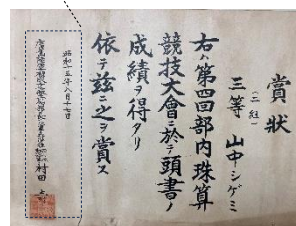 賞狀
(二組)
三等 山中シゲミ
右ハ第四回部内珠算
競技大會ニ於テ頭書ノ
成績ヲ得タリ
依テ茲ニ之ヲ賞ス
昭和十五年八月十七日
村田